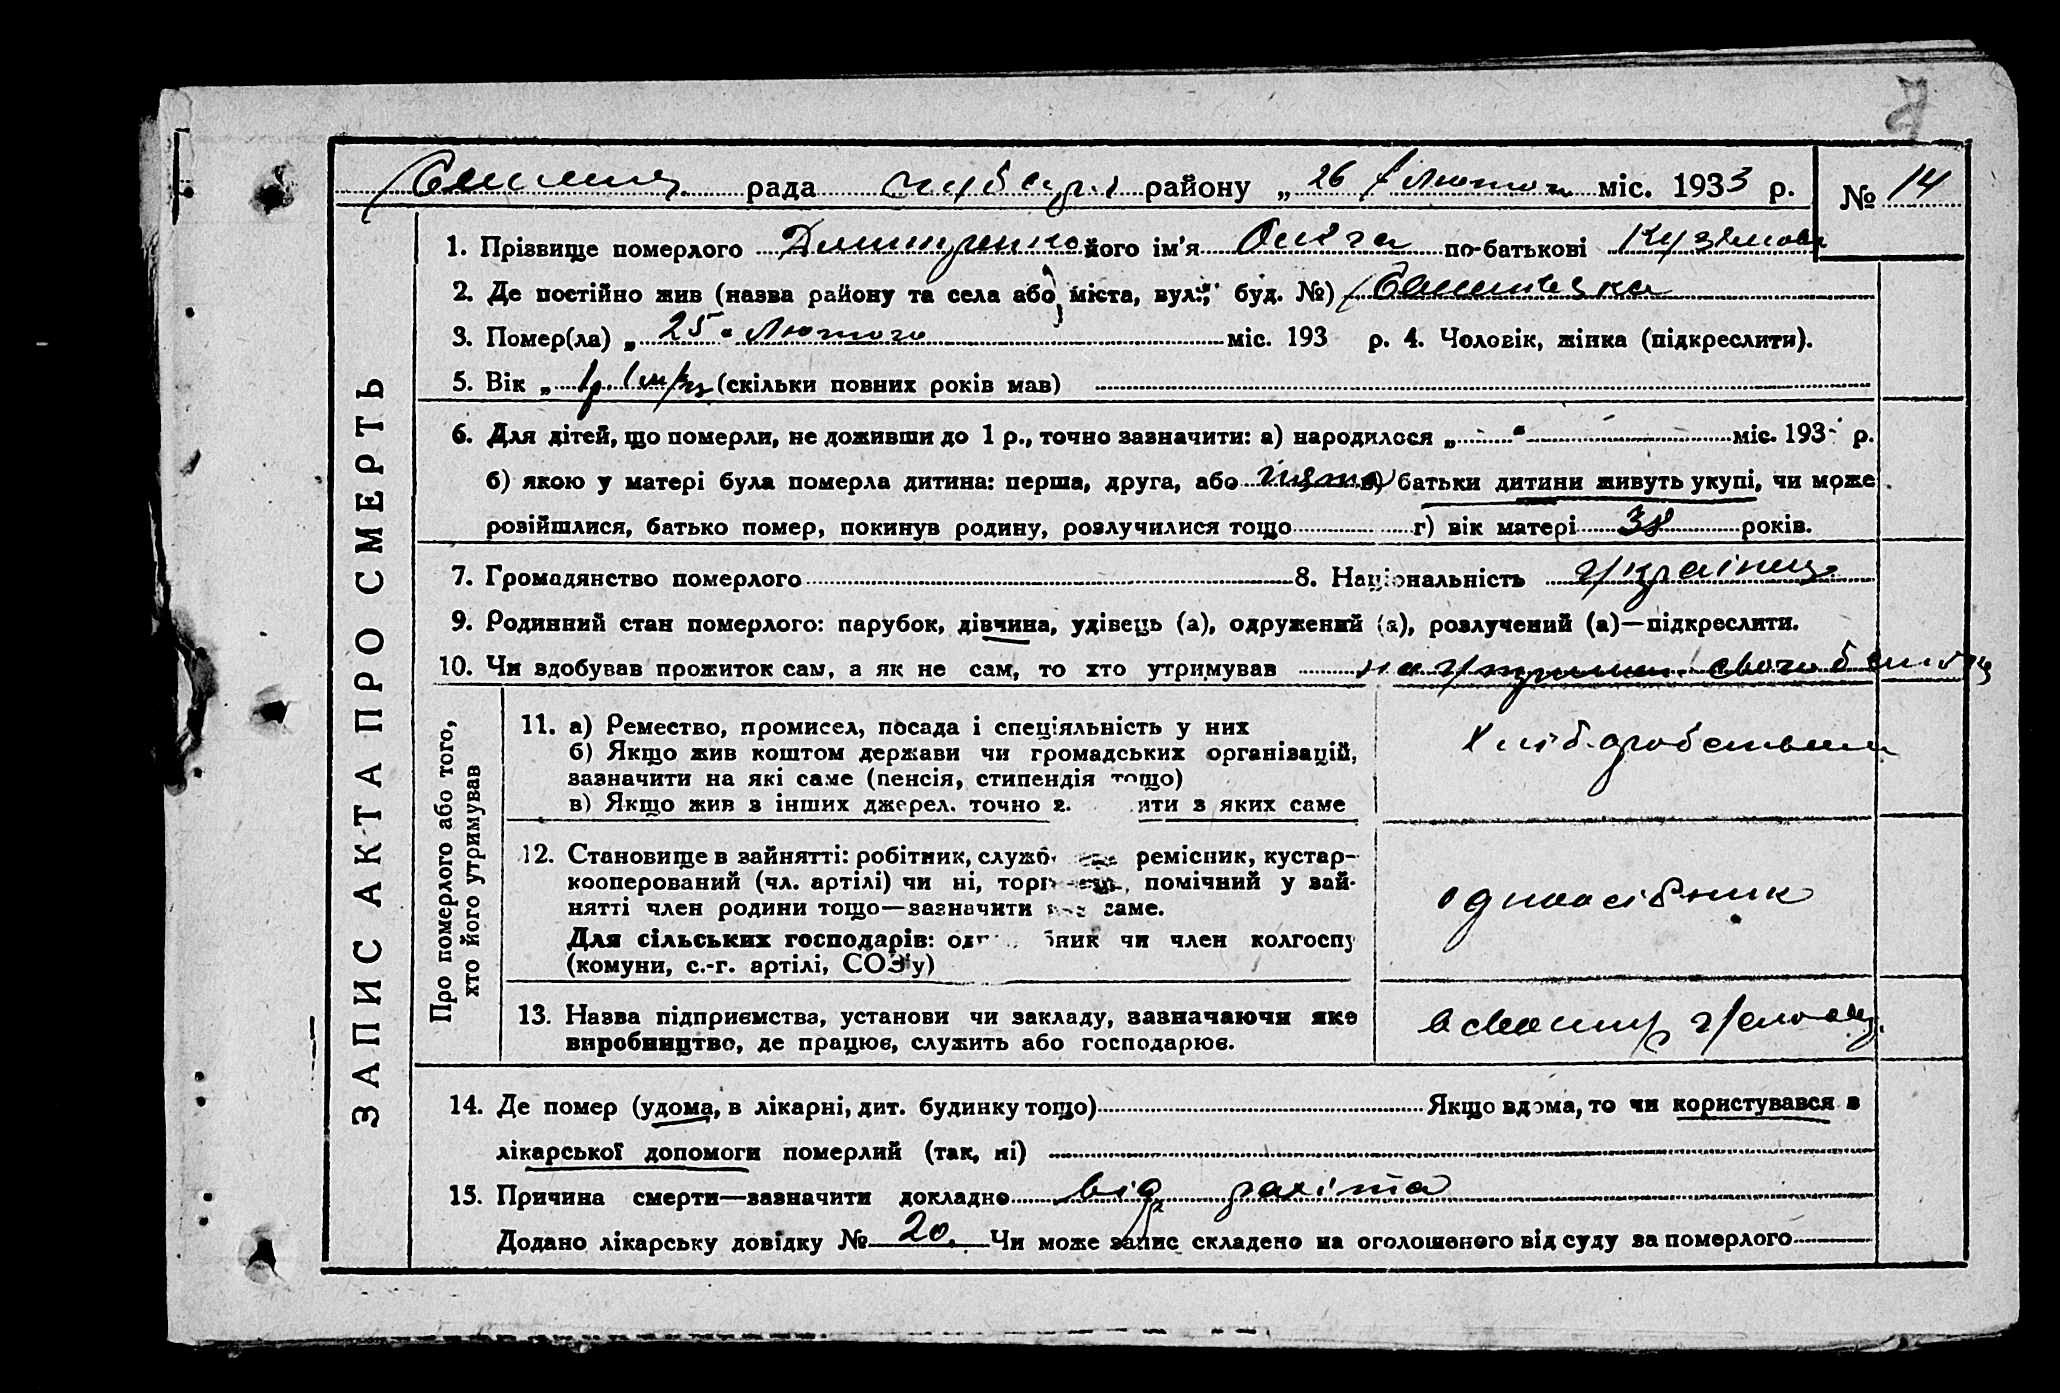 рада району „ 26 " лютого міс. 1933 р. № 14
ЗАПИС АКТА ПРО СМЕРТЬ
1. Прізвище померлого Дмитренко його ім'я Ольга по-батькові Кузьмовна
2. Де постійно жив (назва району та села або міста, вул., буд. №)
3. Помер(ла) „ 25 " лютого міс. 193 р. 4. Чоловік, жінка (підкреслити).
5. Вік „ 1 р. (скільки повних років мав)
6. Для дітей, що померли, не доживши до 1 р., точно зазначити: а) народилося „ " міс. 193 р.
б) якою у матері була померла дитина: перша, друга, або в) батьки дитини живуть укупі, чи може
розійшлися, батько помер, покинув родину, розлучилися тощо г) вік матері 38 років.
7. Громадянство померлого 8. Національність українц.
9. Родинний стан померлого: парубок, дівчина, удівець (а), одружений (а), розлучений (а)—підкреслити.
10. Чи здобував прожиток сам, а як не сам, то хто утримував на утриман. свого батька
Про померлого або того,
хто його утримував
11. а) Ремество, промисел, посада і спеціяльність у них
б) Якщо жив коштом держави чи громадських організацій,
зазначити на які саме (пенсія, стипендія тощо)
в) Якщо жив з інших джерел, точно з. ити з яких саме
12. Становище в зайнятті: робітник, служб ремісник, кустар-
кооперований (чл. артілі) чи ні, торг помічний у зай-
нятті член родини тощо—зазначити саме.
Для сільських господарів: од бник чи член колгоспу
(комуни, с.-г. артілі, СОЗ'у)
одноосібник
13. Назва підприємства, установи чи закладу, зазначаючи яке
виробництво, де працює, служить або господарює.
14. Де помер (удома, в лікарні, дит. будинку тощо) Якщо вдома, то чи користувався з
лікарської допомоги померлий (так, ні)
15. Причина смерти—зазначити докладно від рахіта
Додано лікарську довідку № 20. Чи може запис складено на оголошеного від суду за померлого